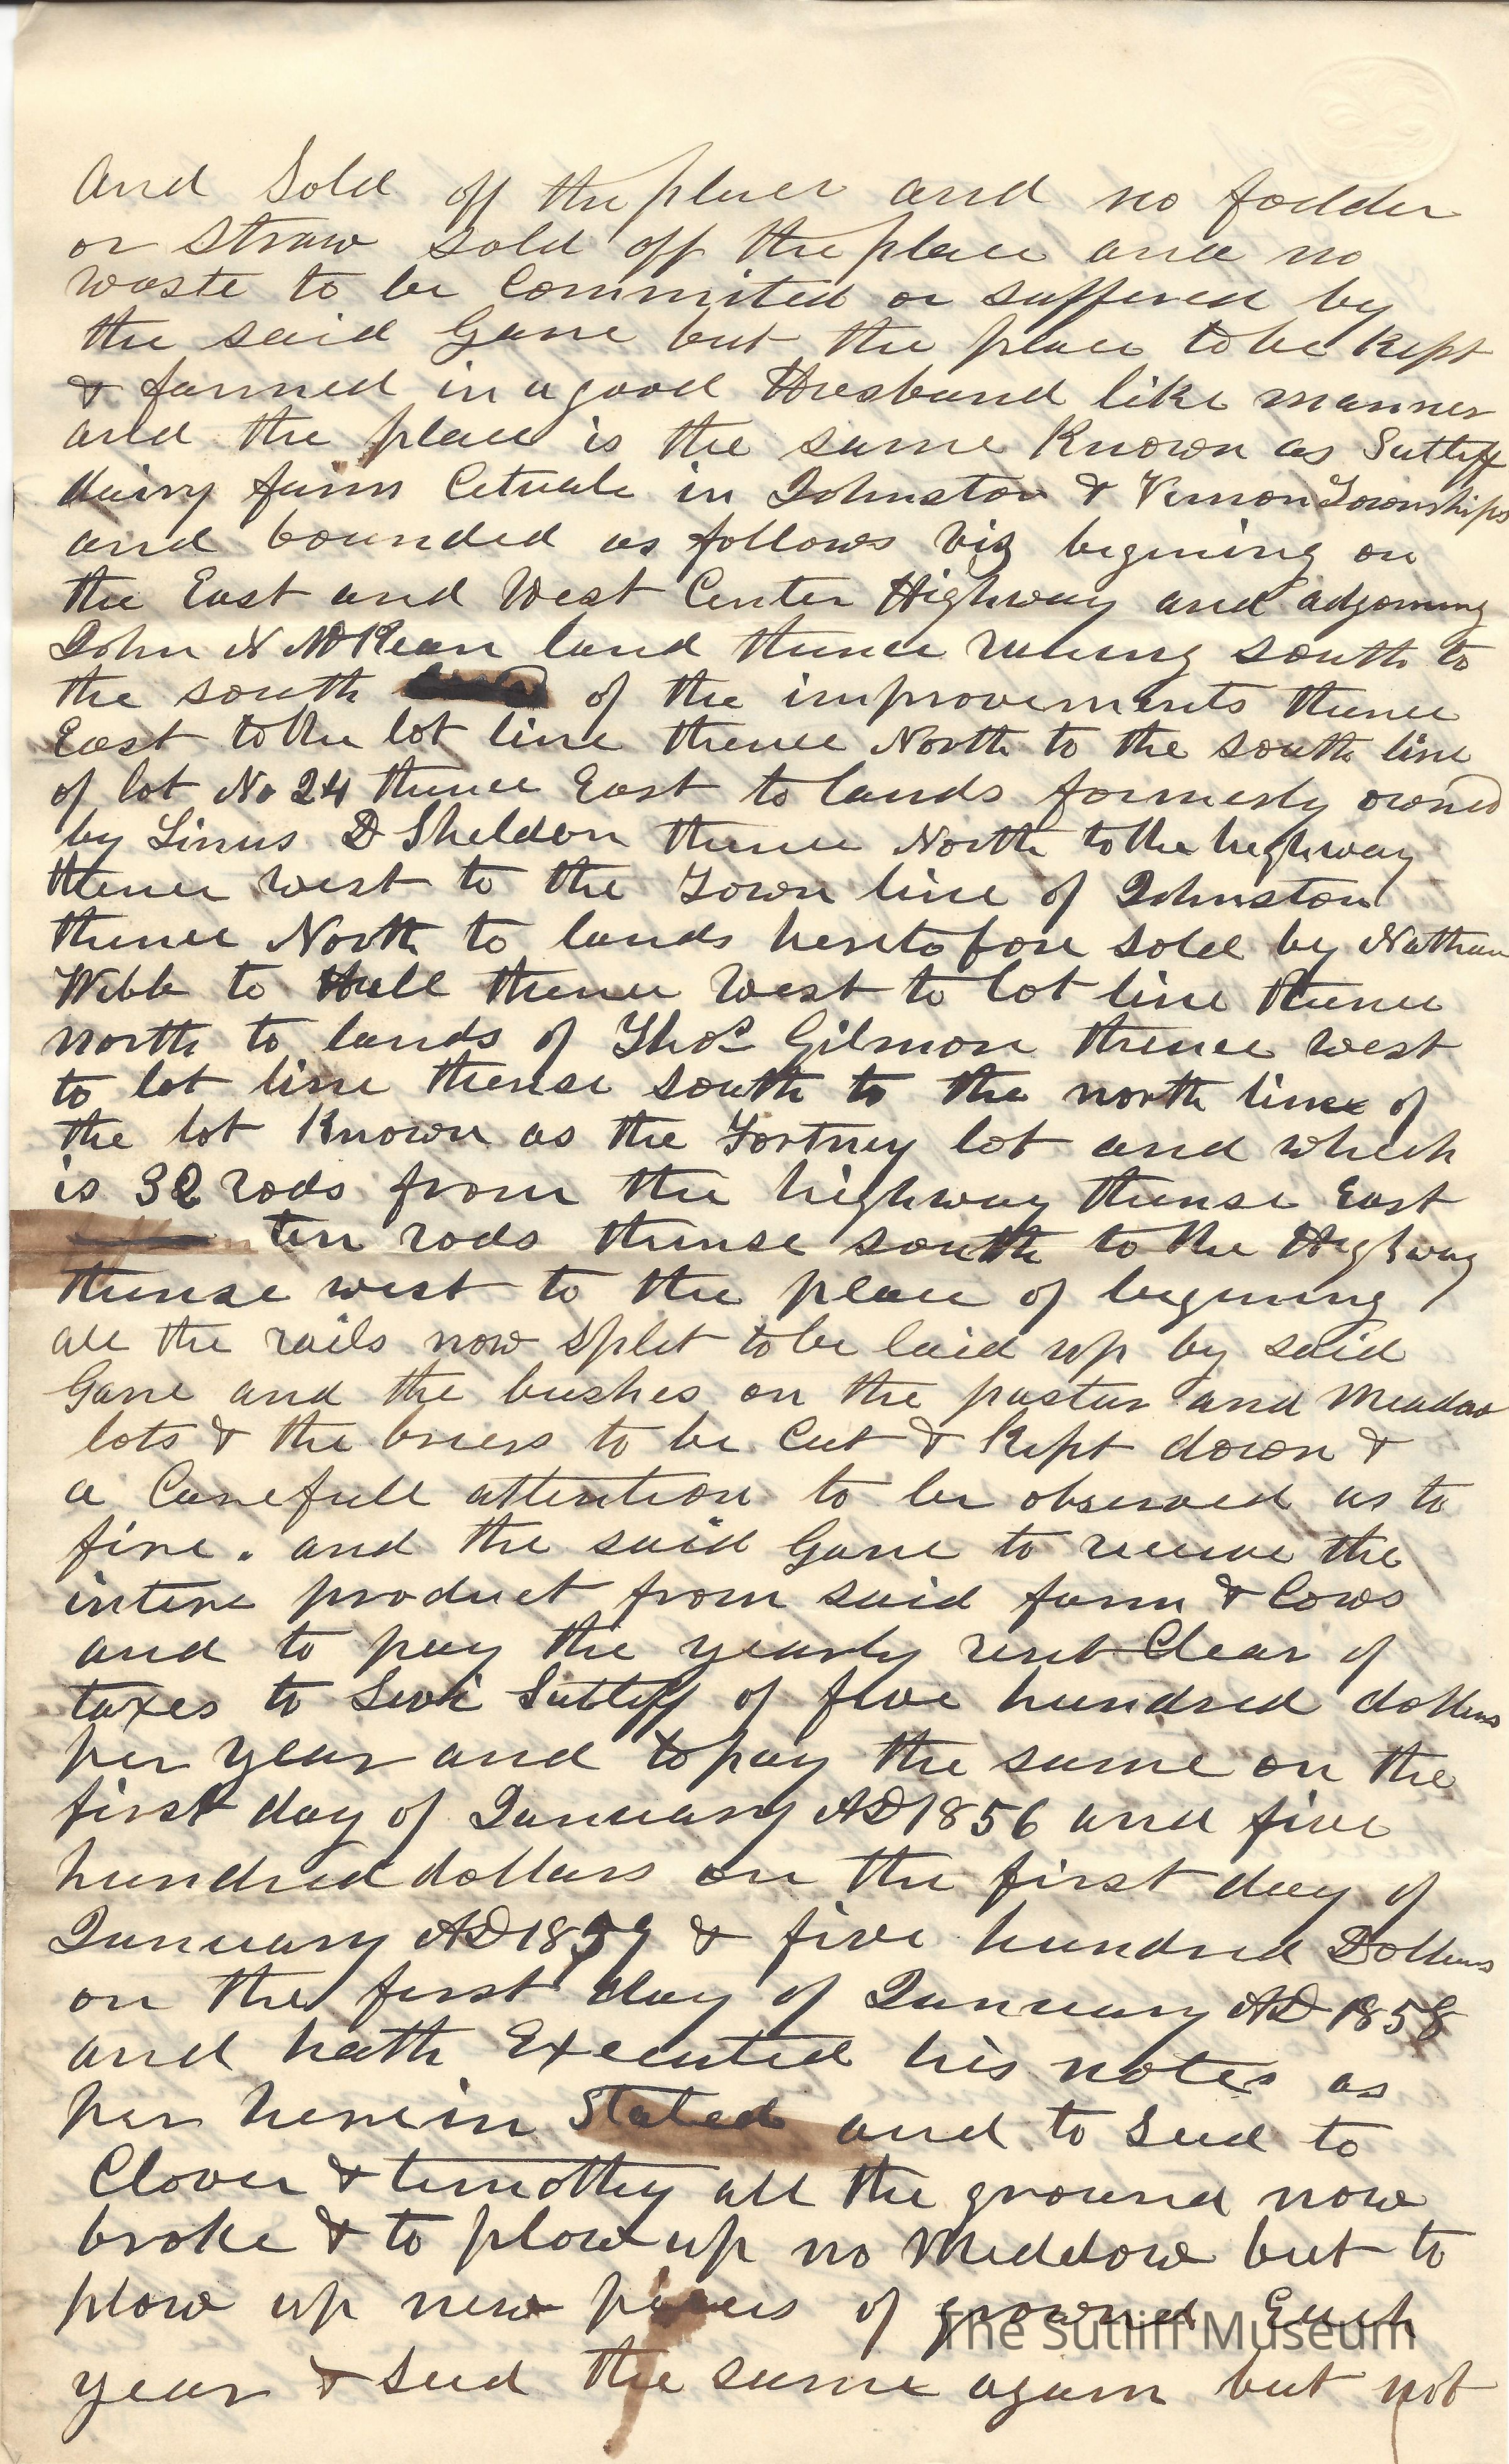 and Sold off the place and no fodder
or Straw sold off the place and no
waste to be Commited or suffered by
the said Gane but the place to be Kept
& farmed in a good Husband like manner
and the place is the same Known as Sutliff
dairy farm Cituate in Johnston & Vernon Townships
and bounded as follows viz begining on
the East and West Center Highway and adjoining
John N McKean land thence runing south to
the south of the improvements thence
East to the lot line thence North to the south line
of lot No 24 thence East to lands formerly owned
by Linus D Sheldon thence North to the highway
thence west to the Town line of Johnston
thence North to lands heretofore sold by Nathan
Webb to Hull thence West to lot line thence
north to lands of Thos Gilmore thence west
to lot line thense south to the north line of
the lot Known as the Fortney lot and which
is 32 rods from the highway thense East
ten rods thense south to the Highway
thense west to the place of begining
all the rails now split to be laid up by said
Gane and the bushes on the pastur and Meadow
lots & the briers to be Cut & Kept down &
a Carefull attention to be observed as to
fire. and the said Gane to receive the
intire product from said farm & Cows
and to pay the yearly rent Clear of
taxes to Levi Sutliff of five hundred dollars
per year and to pay the same on the
first day of January AD 1856 and five
hundred dollars on the first day of
January AD 1857 & five hundred Dollars
on the first day of January AD 1858
and hath Executed his notes as
per herein Stated and to Seed to
Clover & timothy all the ground now
broke & to plow up no Meddow but to
plow up new pieces of ground Each
year & Seed the same again but not
The Sutliff Museum